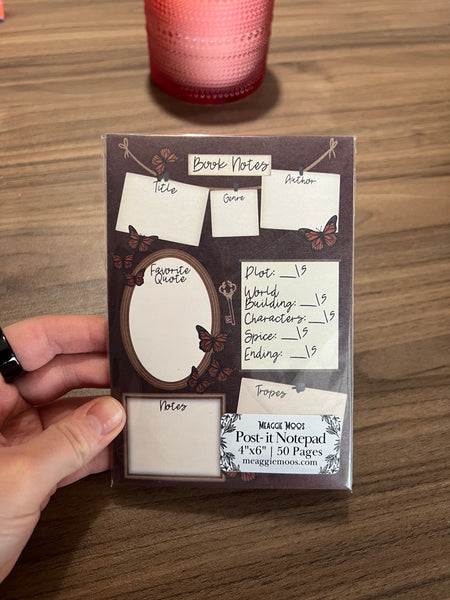 Book Notes
Title
Genre
Author
Favorite
Quote
Plot: __\5
World
Building: __\5
Characters: __\5
Spice: __\5
Ending: __\5
Notes
Tropes
MEAGGIE MOOS
Post-it Notepad
4"x6" | 50 Pages
meaggiemoos.com